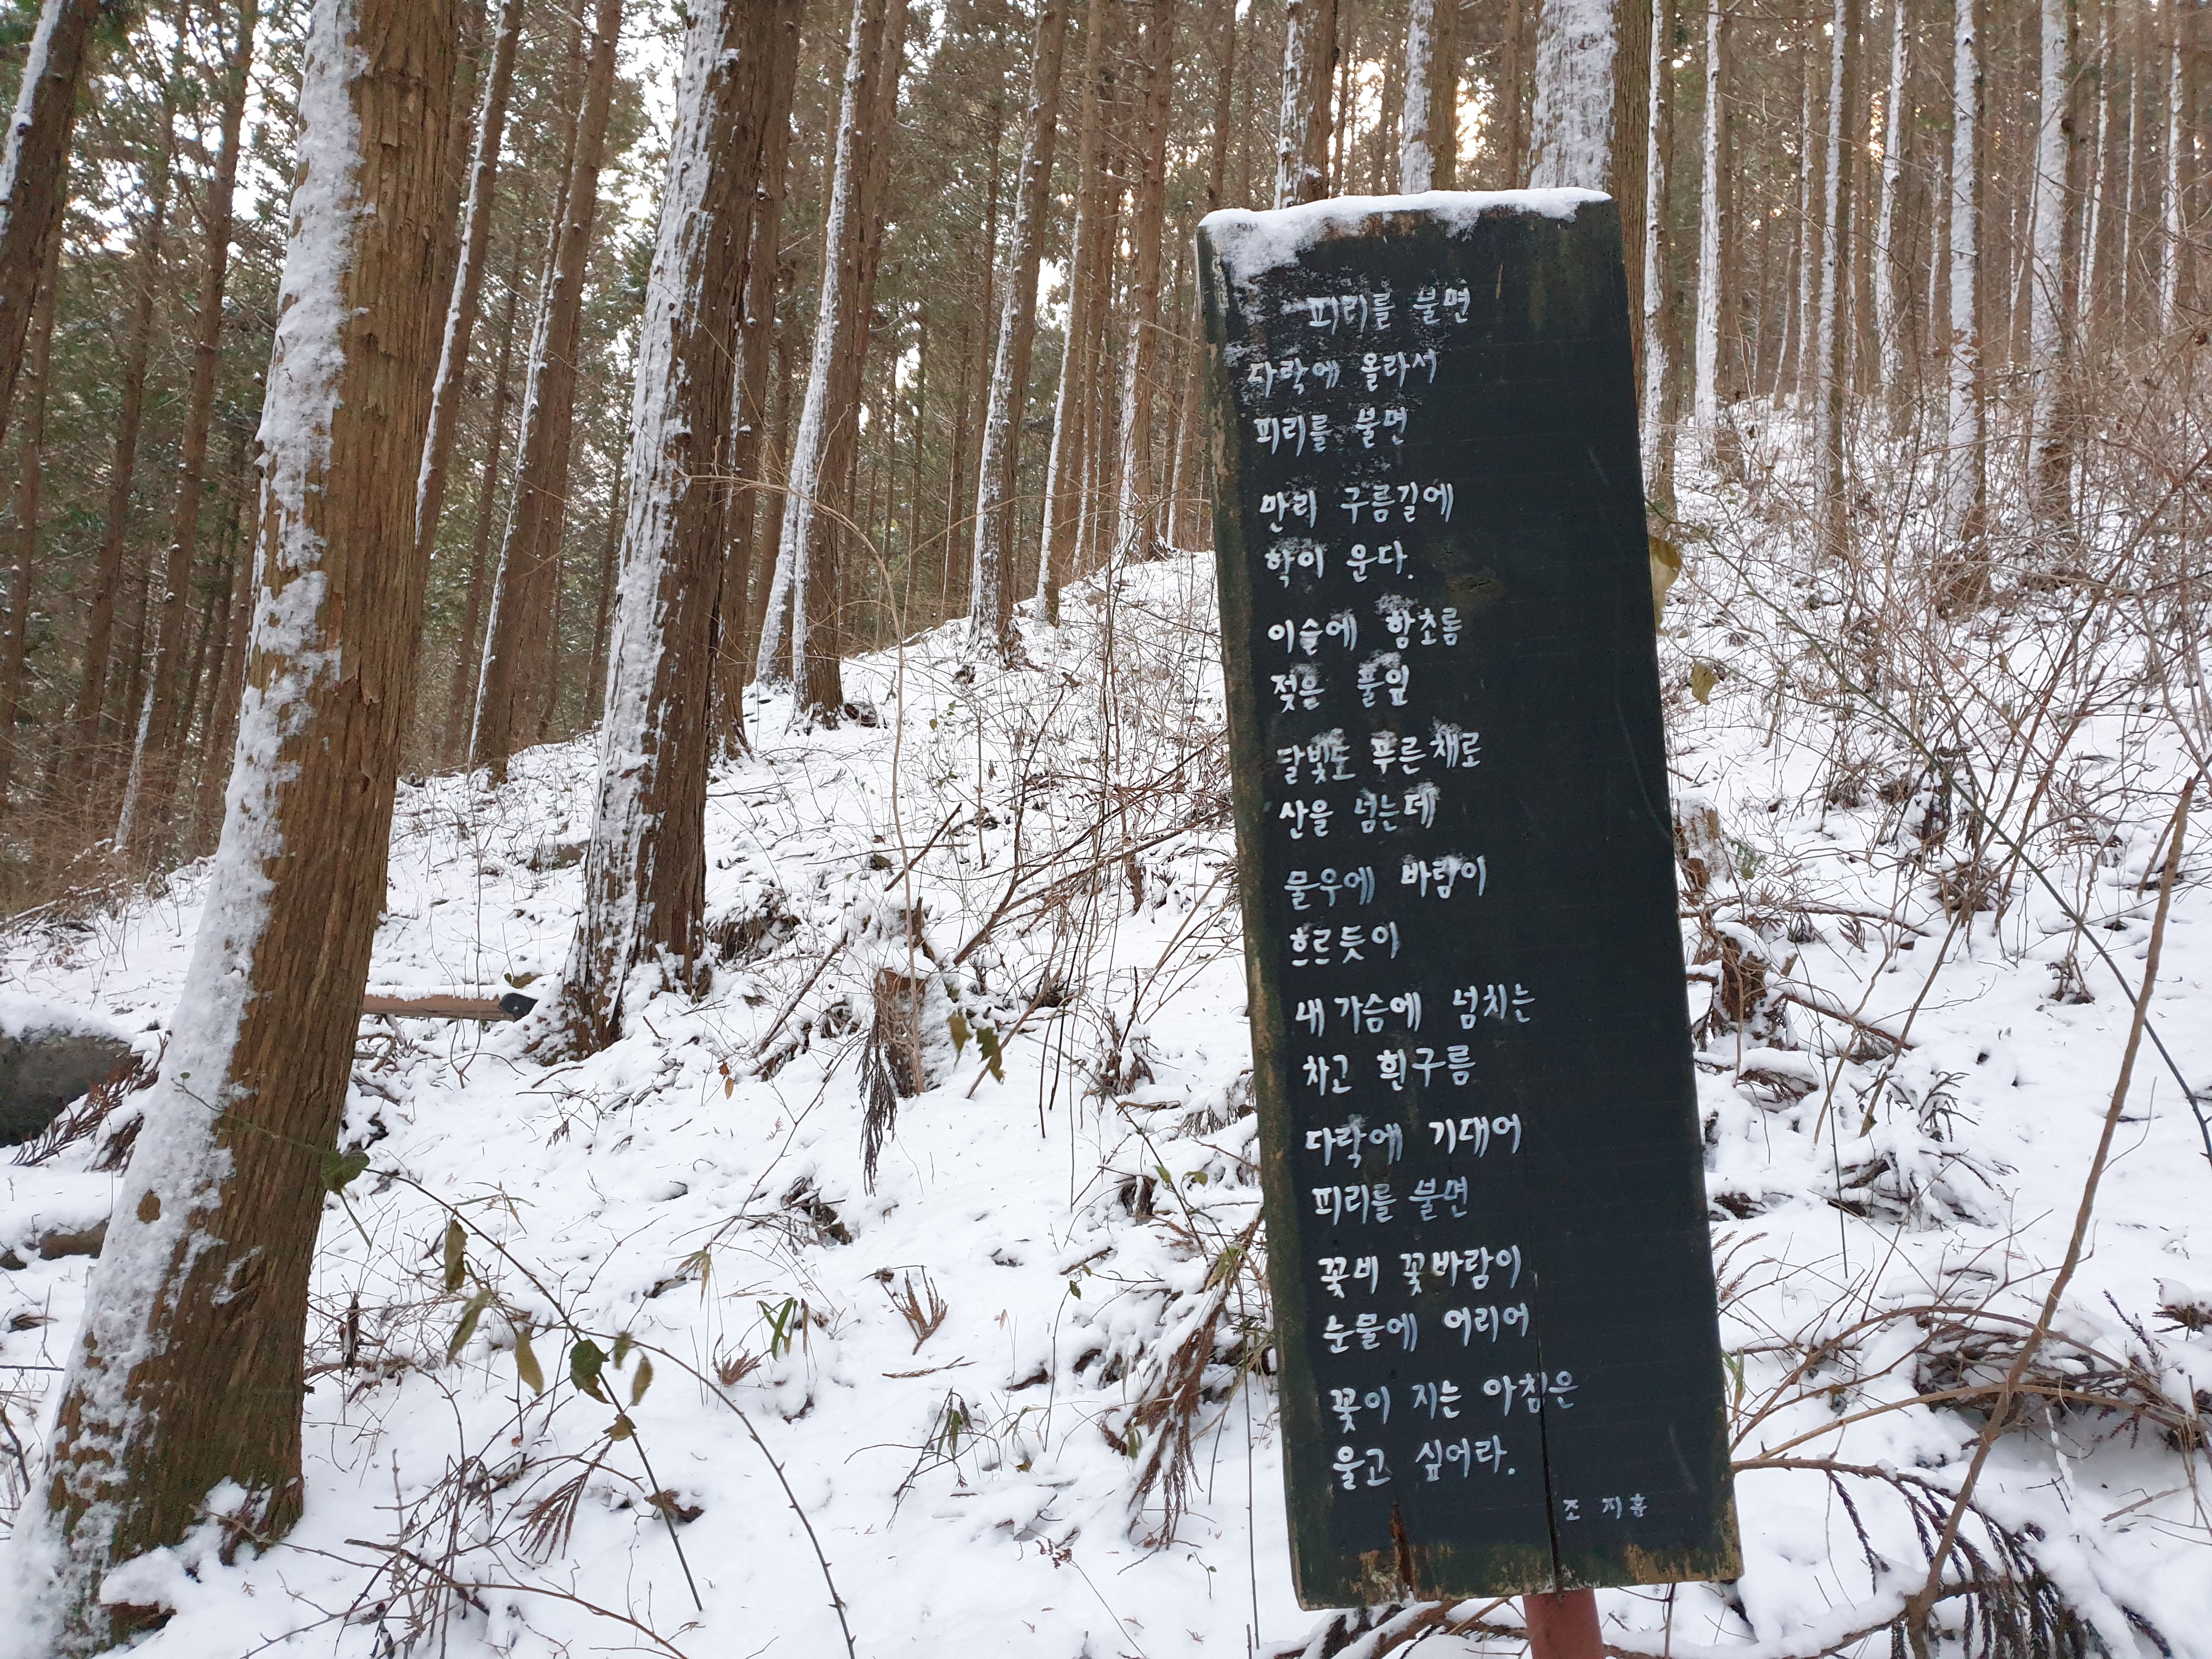 피리를 불면
다락에 올라서
피리를 불면
만리 구름길에
학이 운다.
이슬에 함초름
젖은 풀잎
달빛도 푸른채로
산을 넘는데
물우에 바람이
흐르듯이
내 가슴에 넘치는
차고 흰구름
다락에 기대어
피리를 불면
꽃비 꽃바람이
눈물에 어리어
꽃이 지는 아침은
울고 싶어라.
조 지훈